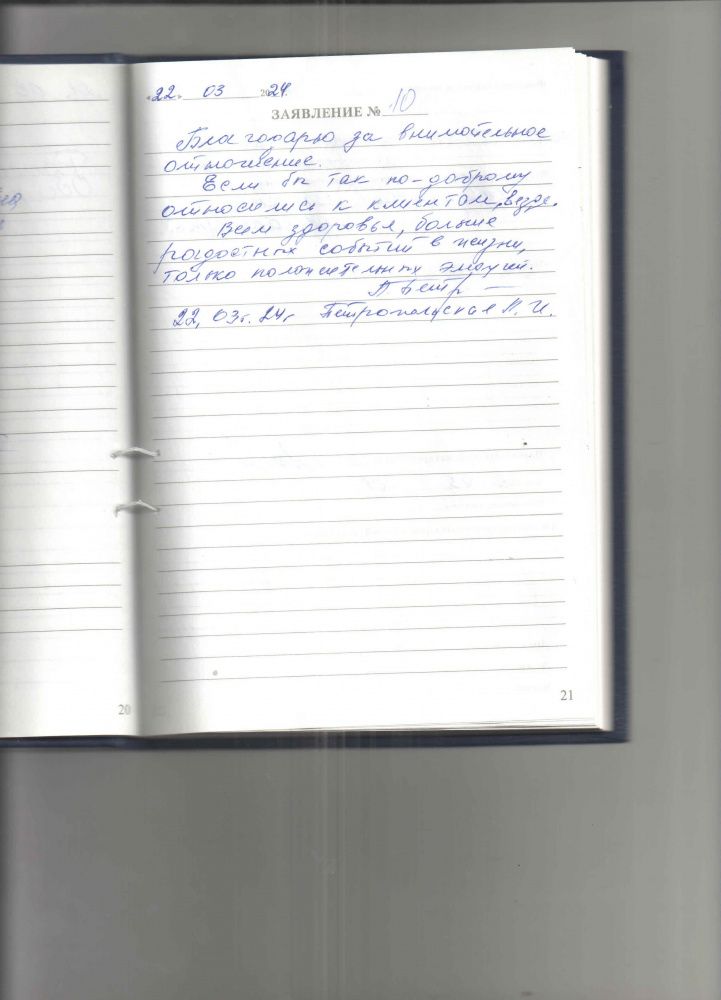 «22» 03 2024
ЗАЯВЛЕНИЕ № 10
Благодарю за внимательное
отношение.
Если бы так по-доброму
относились к клиентам везде.
Всем здоровья, больше
радостных событий в жизни,
только положительных эмоций.
22. 03г. 24г
20
21